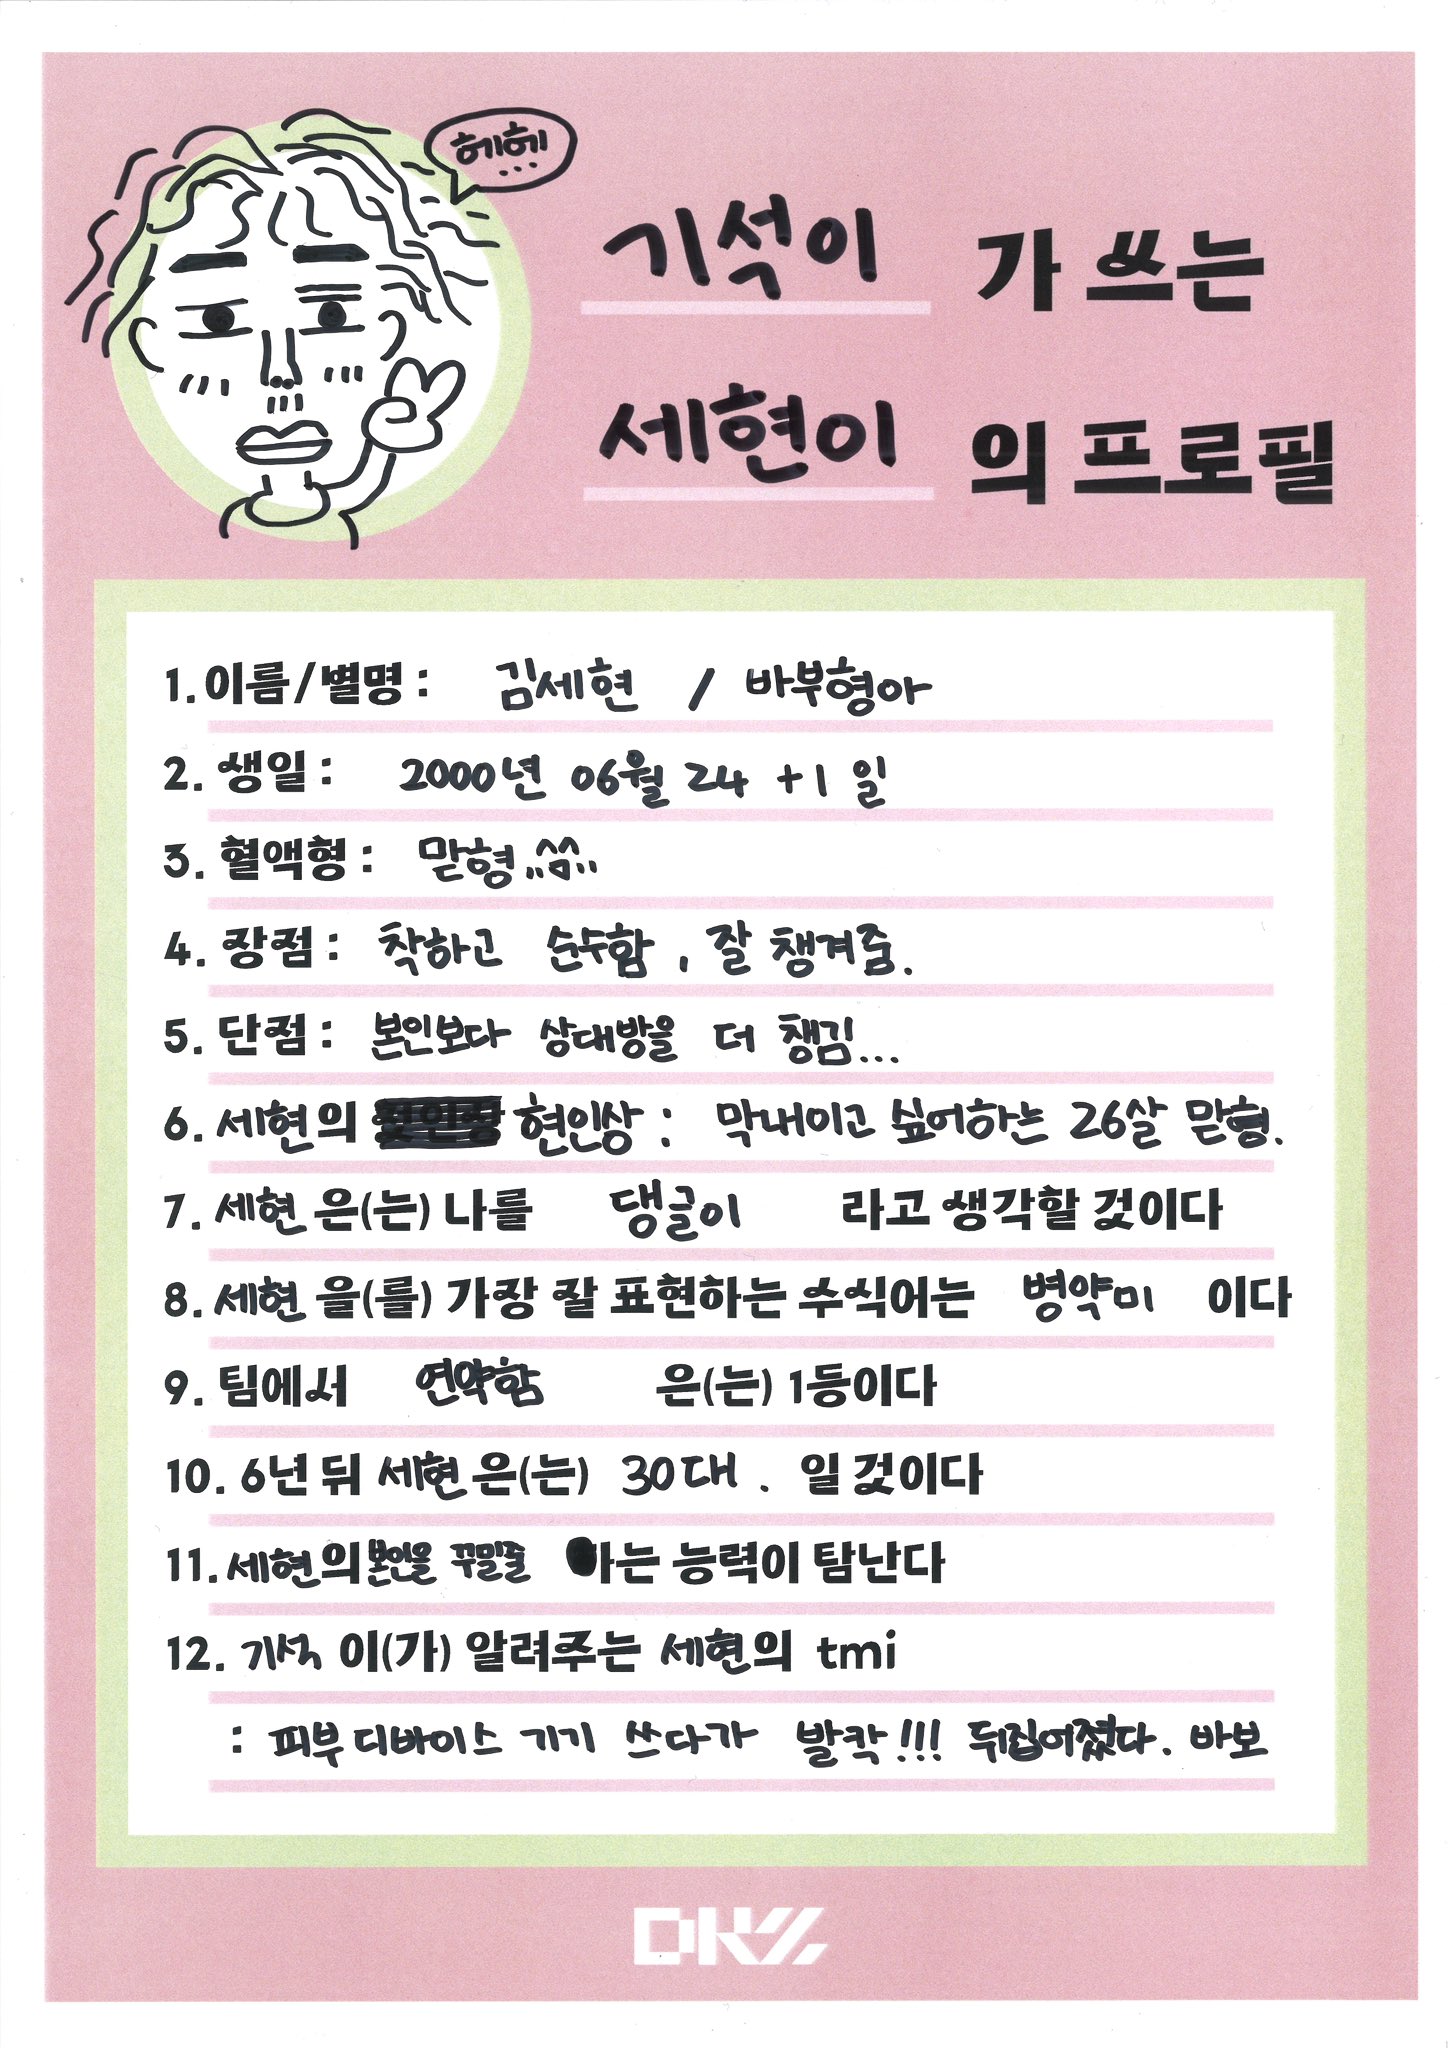 헤헤...
기석이 가 쓰는
세현이 의 프로필
1. 이름/별명 : 김세현 / 바부형아
2. 생일 : 2000년 06월 24 +1 일
3. 혈액형 : 맏형..^^..
4. 장점 : 착하고 순수함, 잘 챙겨줌.
5. 단점 : 본인보다 상대방을 더 챙김...
6. 세현의 현인상 : 막내이고 싶어하는 26살 맏형.
7. 세현 은(는) 나를 댕글이 라고 생각할 것이다
8. 세현 을(를) 가장 잘 표현하는 수식어는 병약미 이다
9. 팀에서 연약함 은(는) 1등이다
10. 6년 뒤 세현 은(는) 30대. 일 것이다
11. 세현의 본인을 꾸밀줄 아는 능력이 탐난다
12. 기석 이(가) 알려주는 세현의 tmi
: 피부 디바이스 기기 쓰다가 발칵!!! 뒤집어졌다. 바보
DKZ